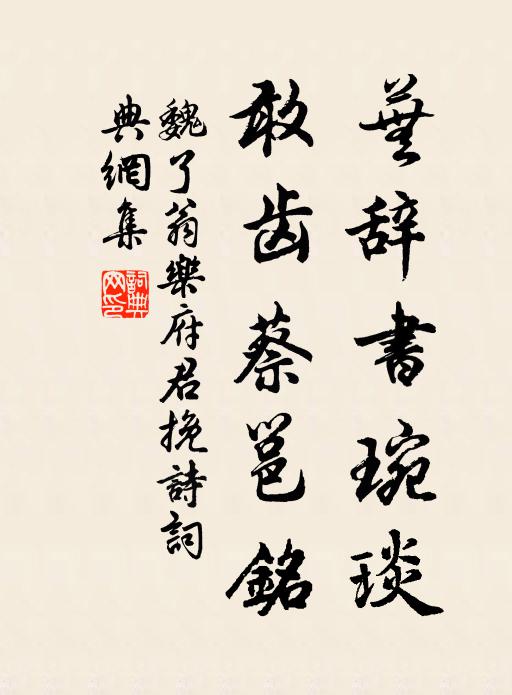 蕪辞書琬琰
敢齿蔡邕銘
魏了翁樂府君挽詩詞
典網集
詞典网印